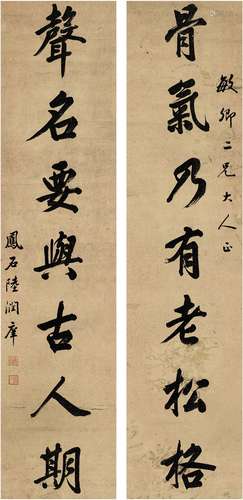 敏卿二兄大人正
骨氣乃有老松格
聲名要與古人期
鳳石陸潤庠